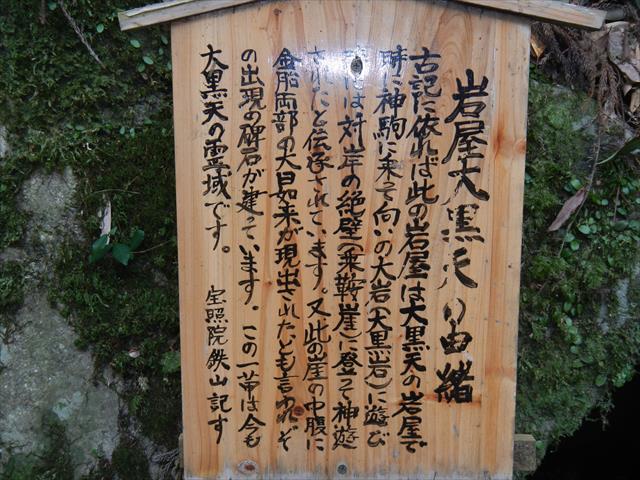 岩屋大黒天の由緒
古記に依れば此の岩屋は大黒天の岩屋で
時に神駒に乗って向いの大岩(大黒岩)に遊び
には対岸の絶壁(乗鞍崖)に登って神遊
されたと伝承されています。又此の崖の中腹に
金胎両部の大日如来が現出されたとも言われ、そ
の出現の碑石が建っています。この一帯は今も
大黒天の霊域です。
宝照院鉄山記す